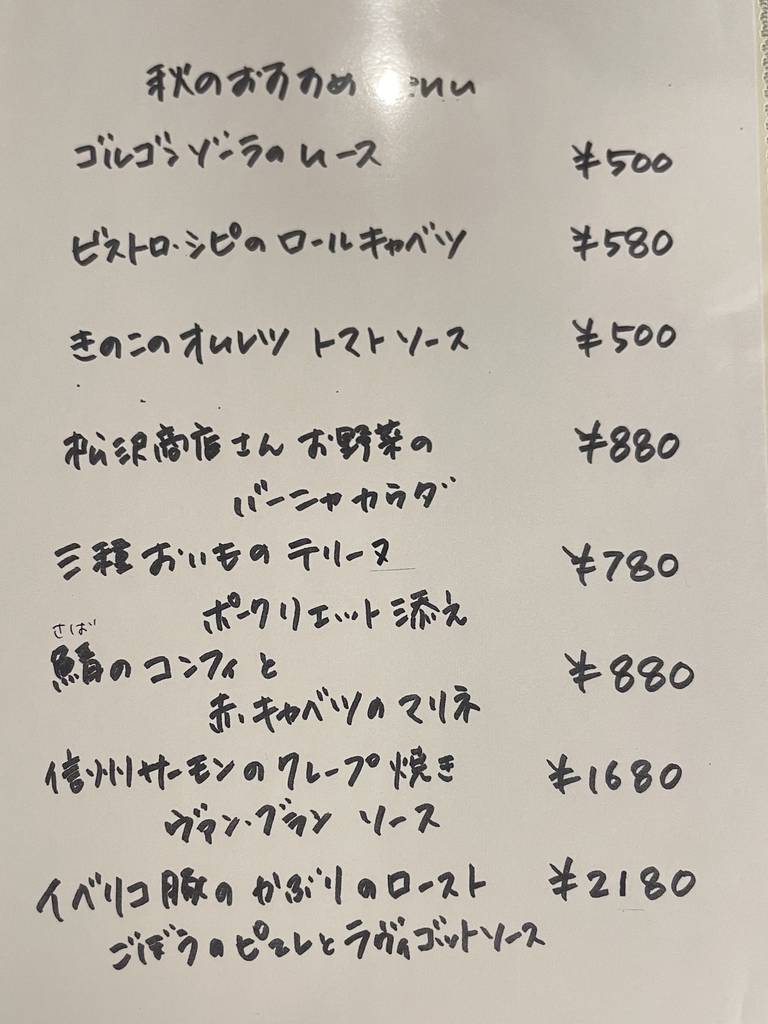 秋のおすすめ menu
ゴルゴンゾーラのムース ¥500
ビストロ・シピの ロールキャベツ ¥580
きのこのオムレツ トマトソース ¥500
松沢商店さん お野菜の ¥880
バーニャカウダ
三種おいもの テリーヌ ¥780
ポークリエット添え
さば
鯖のコンフィと ¥880
赤キャベツのマリネ
信州サーモンのクレープ焼き ¥1680
ヴァン・ブラン ソース
イベリコ豚の かぶりのロースト ¥2180
ごぼうのピュレとラヴィゴットソース